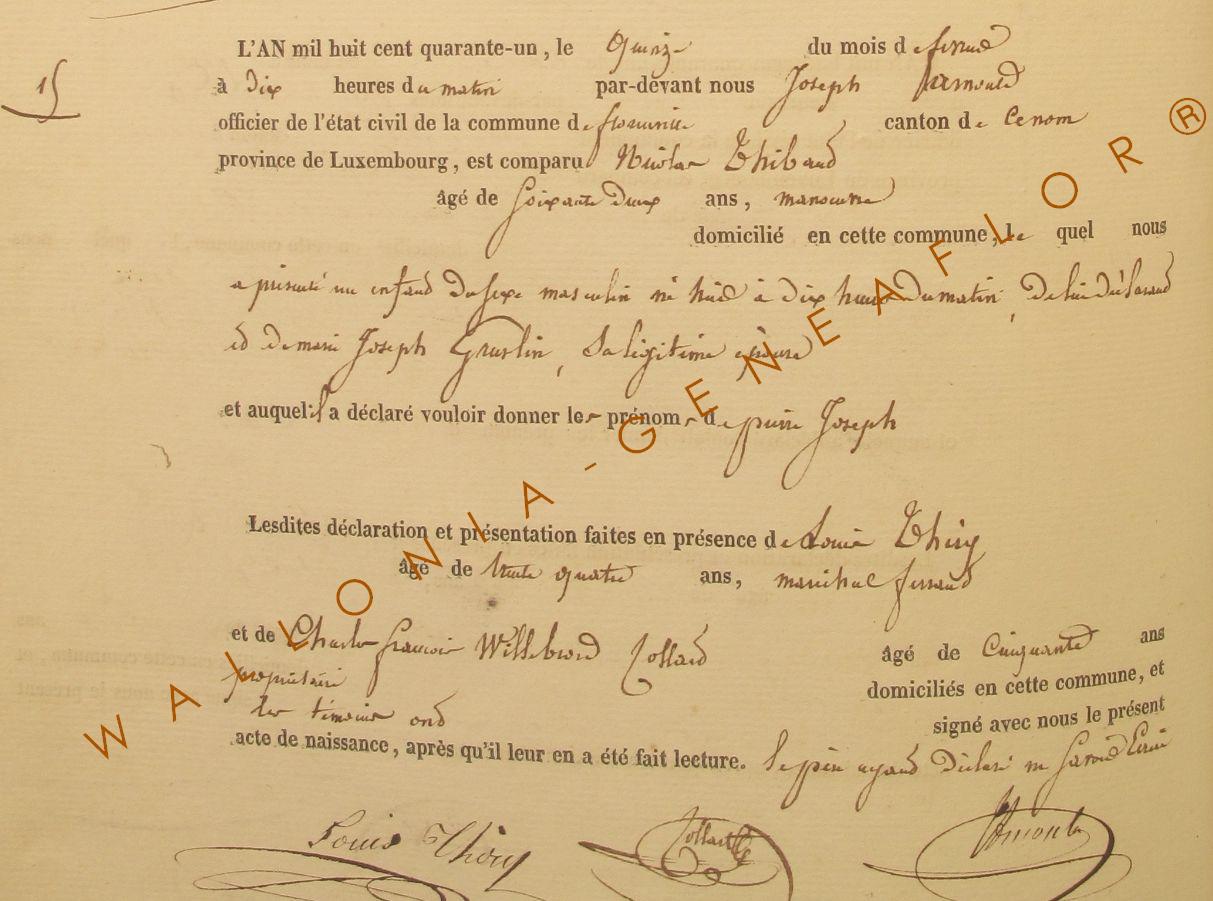 15
L'AN mil huit cent quarante-un, le quinze du mois de fevrier
à dix heures du matin par-devant nous Joseph Arnould
officier de l'état civil de la commune de florenville canton de
province de Luxembourg, est comparu Nicolas Thibaud
âgé de Soixante Deux ans, manoeuvre
domicilié en cette commune, le quel nous
a présenté un enfand du sexe masculin né hui à dix heures du matin, de lui déclarand
et de marie Joseph Gruslin, Sa légitime épouse
et auquel il a déclaré vouloir donner les prénoms de pierre Joseph
Lesdites déclaration et présentation faites en présence de Louis Thiry
âgé de trente quatre ans, maréchal ferrand
et de Charles francois Willebrord Collard âgé de Cinquante ans
propriétaire domiciliés en cette commune, et
les témoins ond signé avec nous le présent
acte de naissance, après qu'il leur en a été fait lecture. le père ayand Déclaré ne Savoir Ecrire
Louis Thiry Collard
WALLONIA-GENEAFLOR®